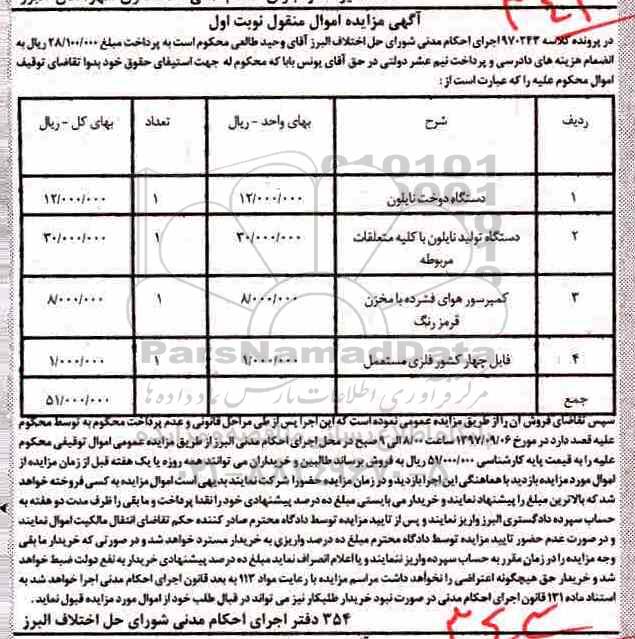 آگهی مزایده اموال منقول نوبت اول
در پرونده کلاسه ۹۷۰۲۴۳ اجرای احکام مدنی شورای حل اختلاف البرز آقای وحید طالعی محکوم است به پرداخت مبلغ ۲۸/۱۰۰/۰۰۰ ریال به
انضمام هزینه های دادرسی و پرداخت نیم عشر دولتی در حق آقای یونس بابا که محکوم له جهت استیفای حقوق خود بدوا تقاضای توقیف
اموال محکوم علیه را که عبارت است از:
ردیف شرح بهای واحد - ریال تعداد بهای کل - ریال
۱ دستگاه دوخت نایلون ۱۲/۰۰۰/۰۰۰ ۱ ۱۲/۰۰۰/۰۰۰
۲ دستگاه تولید نایلون با کلیه متعلقات مربوطه ۳۰/۰۰۰/۰۰۰ ۱ ۳۰/۰۰۰/۰۰۰
۳ کمپرسور هوای فشرده با مخزن قرمز رنگ ۸/۰۰۰/۰۰۰ ۱ ۸/۰۰۰/۰۰۰
۴ فایل چهار کشور فلزی مستعمل ۱/۰۰۰/۰۰۰ ۱ ۱/۰۰۰/۰۰۰
جمع ۵۱/۰۰۰/۰۰۰
سپس تقاضای فروش آن را از طریق مزایده عمومی نموده است که این اجرا پس از طی مراحل قانونی و عدم پرداخت محکوم به توسط محکوم
علیه قصد دارد در مورخ ۱۳۹۷/۰۹/۰۶ ساعت ۸/۰۰ الی ۹ صبح در محل اجرای احکام مدنی البرز از طریق مزایده عمومی اموال توقیفی محکوم
علیه را به قیمت پایه کارشناسی ۵۱/۰۰۰/۰۰۰ ریال به فروش برساند طالبین و خریداران می توانند همه روزه یا یک هفته قبل از زمان مزایده از
اموال مورد مزایده بازدید با هماهنگی این اجرا بازدید و در زمان مزایده حضورا شرکت نمایند بدیهی است اموال مزایده به کسی فروخته خواهد
شد که بالاترین مبلغ را پیشنهاد نمایند و خریدار می بایستی مبلغ ده درصد پیشنهادی خود را نقدا پرداخت و مابقی را ظرف مدت دو هفته به
حساب سپرده دادگستری البرز واریز نمایند و پس از تایید مزایده توسط دادگاه محترم صادر کننده حکم تقاضای انتقال مالکیت اموال نمایند
و در صورت عدم حضور تایید مزایده توسط دادگاه محترم مبلغ ده درصد واریزی به خریدار مسترد خواهد شد و در صورتی که خریدار ما بقی
وجه مزایده را در زمان مقرر به حساب سپرده واریز ننمایند و یا اعلام انصراف نماید مبلغ ده درصد پیشنهادی خریدار به نفع دولت ضبط خواهد
شد و خریدار حق هیچگونه اعتراضی را نخواهد داشت مراسم مزایده با رعایت مواد ۱۱۳ به بعد قانون اجرای احکام مدنی اجرا خواهد شد به
استناد ماده ۱۳۱ قانون اجرای احکام مدنی در صورت نبود خریدار طلبکار نیز می تواند در قبال طلب خود از اموال مورد مزایده قبول نماید.
۳۵۴ دفتر اجرای احکام مدنی شورای حل اختلاف البرز
ParsNamadData
مرکز فرآوری اطلاعات پارس نماد داده ها